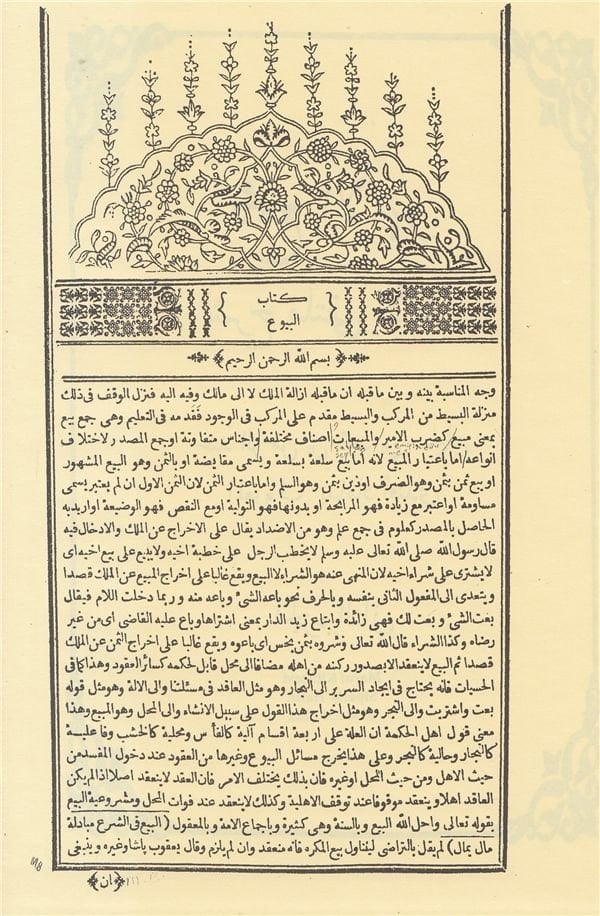 كتاب
البيوع
بسم الله الرحمن الرحيم
وجه المناسبة بينه و بين ما قبله ان ما قبله ازالة الملك لا الى مالك وفيه اليه فنزل الوقف فى ذلك
منزلة البسيط من المركب والبسيط مقدم على المركب فى الوجود فقدمه فى التعليم وهى جمع بيع
بمعنى مبيع كضرب الامير والمبيعات أصناف مختلفة واجناس متفاوتة اوجمع المصدر لاختلاف
انواعه اما باعتبار المبيع لانه اما بيع سلعة بسلعة ويسمى مقايضة او بالثمن وهو البيع المشهور
او بيع ثمن بثمن وهو الصرف اودين بثمن وهو السلم واما باعتبار الثمن لان الثمن الاول ان لم يعتبر يسمى
مساومة او اعتبر مع زيادة فهو المرابحة او بدونها فهو التولية اومع النقص فهو الوضيعة اواريد به
الحاصل بالمصدر كعلوم فى جمع علم وهو من الاضداد يقال على الاخراج عن الملك والادخال فيه
قال رسول الله صلى الله تعالى عليه وسلم لا يخطب الرجل على خطبة اخيه ولا يبيع على بيع اخيه اى
لا يشترى على شراء اخيه لان المنهى عنه هو الشراء لا البيع ويقع غالبا على اخراج المبيع عن الملك قصدا
و يتعدى الى المفعول الثانى بنفسه وبالحرف نحو باعه الشئ وباعه منه و ربما دخلت اللام فيقال
بعت الشئ و بعت لك فهى زائدة وابتاع زيد الدار بمعنى اشتراها وباع عليه القاضى اى من غير
رضاه وكذا الشراء قال الله تعالى وشروه بثمن بخس اى باعوه ويقع غالبا على اخراج الثمن عن الملك
قصدا ثم البيع لا ينعقد الا بصدور ركنه من اهله مضافا الى محل قابل لحكمه كسائر العقود وهذا كما فى
الحسيات فانه يحتاج فى ايجاد السرير الى النجار وهو مثل العاقد فى مسئلتنا والى الالة وهو مثل قوله
بعت واشتريت والى النجر وهو مثل اخراج هذا القول على سبيل الانشاء والى المحل وهو المبيع وهذا
معنى قول اهل الحكمة ان العلة على اربعة اقسام آلية كالفأس ومحلية كالخشب وفاعلية
كالنجار وحالية كالنجر وعلى هذا يخرج مسائل البيوع وغيرها من العقود عند دخول المفسد من
حيث الاهل ومن حيث المحل اوغيره فان بذلك يختلف الامر فان العقد لا ينعقد اصلا اذا لم يكن
العاقد اهلا وينعقد موقوفا عند توقف الاهلية وكذلك لا ينعقد عند فوات المحل ومشروعية البيع
بقوله تعالى واحل الله البيع وبالسنة وهى كثيرة وباجماع الامة و بالمعقول ( البيع فى الشرع مبادلة
مال بمال ) لم يقل بالتراضى ليتناول بيع المكره فانه منعقد وان لم يلزم وقال يعقوب پاشا وغيره و ينبغى
ان